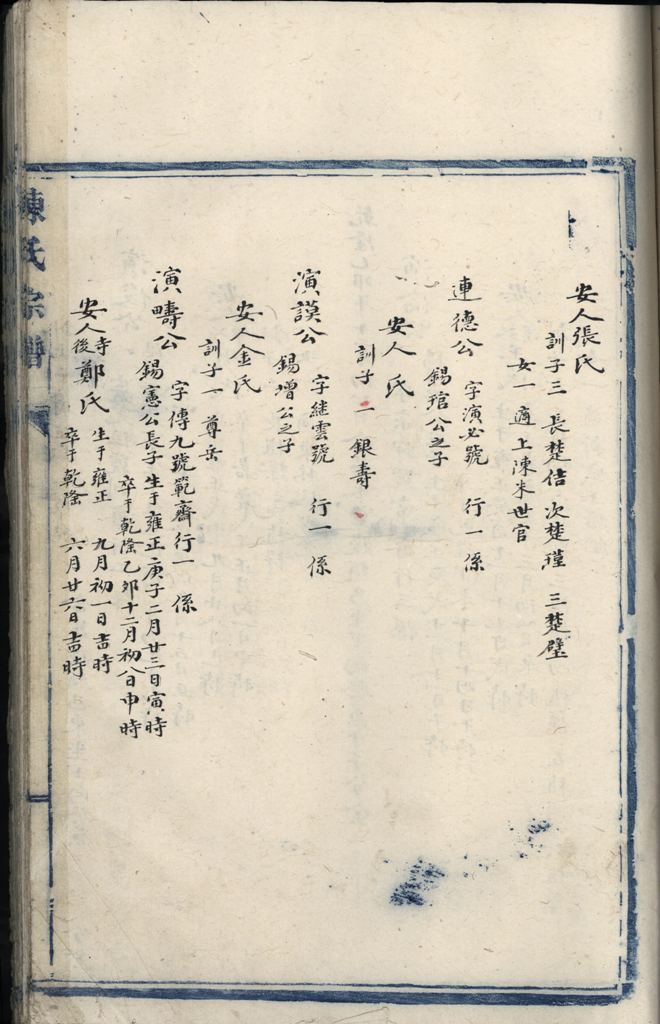 安人張氏
訓子三 長楚佶 次楚瑾 三楚璧
女一 適上陳朱世官
連德公 字演必號 行一 係
錫琯公之子
安人 氏
訓子 一 銀壽
演謨公 字繼雲號 行一 係
錫增公之子
安人金氏
訓子一 尊岳
演疇公 字傳九號範齋行一 係
錫憲公長子 生于雍正庚子二月廿三日寅時
卒于乾隆乙卯十二月初八日申時
安人寺後鄭氏 生于雍正 九月初一日吉時
卒于乾隆 六月廿六日吉時
陳氏宗譜